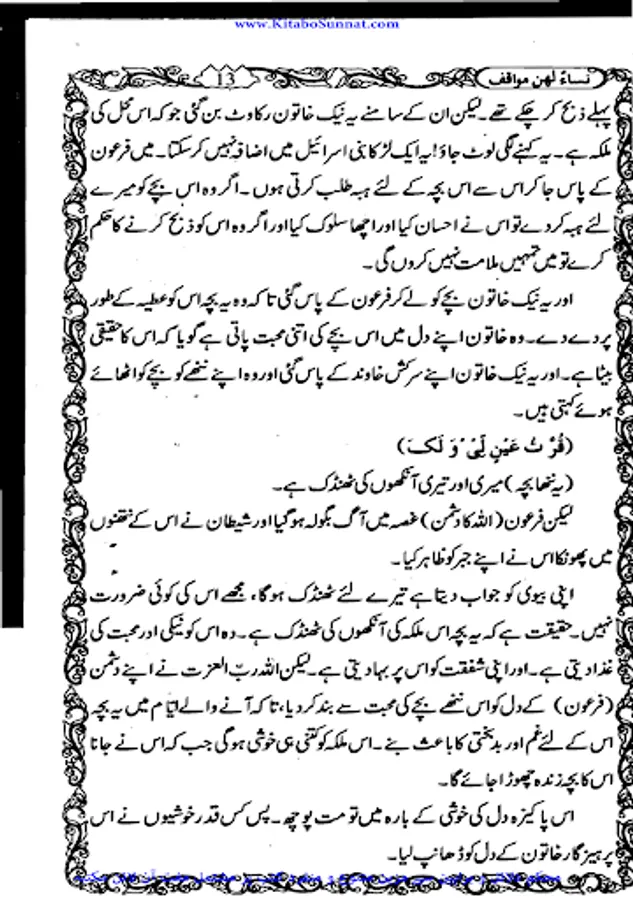 www.KitaboSunnat.com
نساءٌ لهن مواقف
13
پہلے ذبح کر چکے تھے۔ لیکن ان کے سامنے یہ نیک خاتون رکاوٹ بن گئی جو کہ اس محل کی
ملکہ ہے۔ یہ کہنے لگی لوٹ جاؤ! یہ ایک لڑکا بنی اسرائیل میں اضافہ نہیں کر سکتا۔ میں فرعون
کے پاس جا کر اس سے اس بچہ کے لئے ہبہ طلب کرتی ہوں۔ اگر وہ اس بچے کو میرے
لئے ہبہ کر دے تو اس نے احسان کیا اور اچھا سلوک کیا اور اگر وہ اس کو ذبح کرنے کا حکم
کرے تو میں تمہیں ملامت نہیں کروں گی۔
اور یہ نیک خاتون بچے کو لے کر فرعون کے پاس گئی تا کہ وہ یہ بچہ اس کو عطیہ کے طور
پر دے دے۔ وہ خاتون اپنے دل میں اس بچے کی اتنی محبت پاتی ہے گویا کہ اس کا حقیقی
بیٹا ہے۔ اور یہ نیک خاتون اپنے سرکش خاوند کے پاس گئی اور وہ اپنے ننھے کو بچے کو اٹھائے
ہوئے کہتی ہیں۔
(قُرَّتُ عَيْنٍ لِّىْ وَ لَكَ)
(یہ ننھا بچہ) میری اور تیری آنکھوں کی ٹھنڈک ہے۔
لیکن فرعون (اللہ کا دشمن) غصہ میں آگ بگولہ ہو گیا اور شیطان نے اس کے نتھنوں
میں پھونکا اس نے اپنے جبر کو ظاہر کیا۔
اپنی بیوی کو جواب دیتا ہے تیرے لئے ٹھنڈک ہو گا، مجھے اس کی کوئی ضرورت
نہیں۔ حقیقت ہے کہ یہ بچہ اس ملکہ کی آنکھوں کی ٹھنڈک ہے۔ وہ اس کو نیکی اور محبت کی
غذا دیتی ہے۔ اور اپنی شفقت کو اس پر بہا دیتی ہے۔ لیکن اللہ ربّ العزت نے اپنے دشمن
(فرعون) کے دل کو اس ننھے بچے کی محبت سے بند کر دیا، تا کہ آنے والے ایّام میں یہ بچہ
اس کے لئے غم اور بدبختی کا باعث بنے۔ اس ملکہ کو کتنی ہی خوشی ہوگی جب کہ اس نے جانا
اس کا بچہ زندہ چھوڑا جائے گا۔
اس پاکیزہ دل کی خوشی کے بارہ میں تو مت پوچھ۔ پس کس قدر خوشیوں نے اس
پرہیزگار خاتون کے دل کو ڈھانپ لیا۔